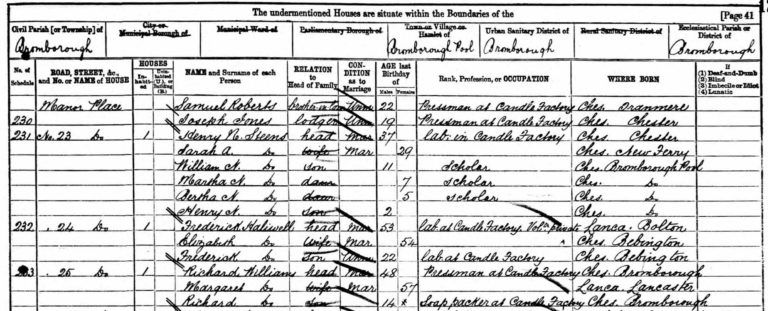 The undermentioned Houses are situate within the Boundaries of the [Page 41
Civil Parish [or Township] of City or Municipal Borough of Municipal Ward of Parliamentary Borough of Town or Village or Hamlet of Urban Sanitary District of Rural Sanitary District of Ecclesiastical Parish or District of
Bromborough Bromborough Pool Bromborough Bromborough
No. of Schedule ROAD, STREET, &c., and No. or NAME of HOUSE HOUSES In-habited Uninhabited (U.), or Building (B.) NAME and Surname of each Person RELATION to Head of Family CON-DITION as to Marriage AGE last Birthday of Males Females Rank, Profession, or OCCUPATION WHERE BORN If (1) Deaf-and-Dumb (2) Blind (3) Imbecile or Idiot (4) Lunatic
Manor Place Samuel Roberts Unm 22 Pressman at Candle Factory Ches. Tranmere
230 Joseph Jones lodger Unm 19 Pressman at Candle Factory Ches. Chester
231 No. 23 Do 1 Henry N. Steens head Mar 37 lab. in Candle Factory Ches. Chester
Sarah A. Do wife Mar 29 Ches. New Ferry
William N. Do son 11 Scholar Ches. Bromborough Pool
Martha N. Do daur 7 Scholar Ches. Do
Bertha N. Do daur 5 Scholar Ches. Do
Henry N. Do son 2 Ches. Do
232 . 24 Do 1 Frederick Haliwell head Mar 53 lab. at Candle Factory Lanca. Bolton
Elizabeth Do Wife Mar. 54 Ches. Bebington
Frederick Do Son Unm 22 lab at Candle Factory Ches. Bebington
233 . 25 Do 1 Richard Williams head Mar 48 Pressman at Candle Factory Ches. Bromborough
Margaret Do wife Mar 57 Lanca. Lancaster
Richard Do son 14 Soap packer at Candle Factory Ches. Bromborough